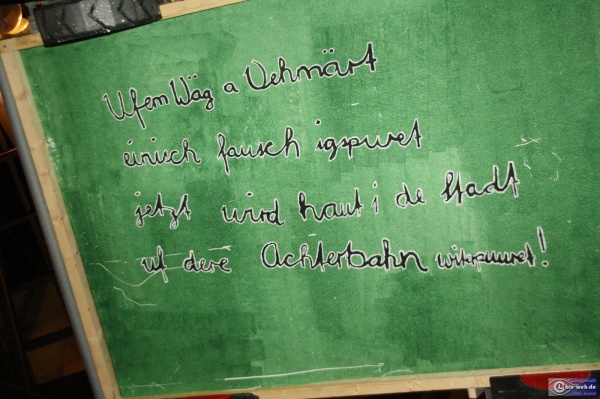 Ufem Wäg a Vehmärt
einisch fausch igspuret
jetzt wird haut i de Stadt
uf dere Achterbahn witerpuuret!